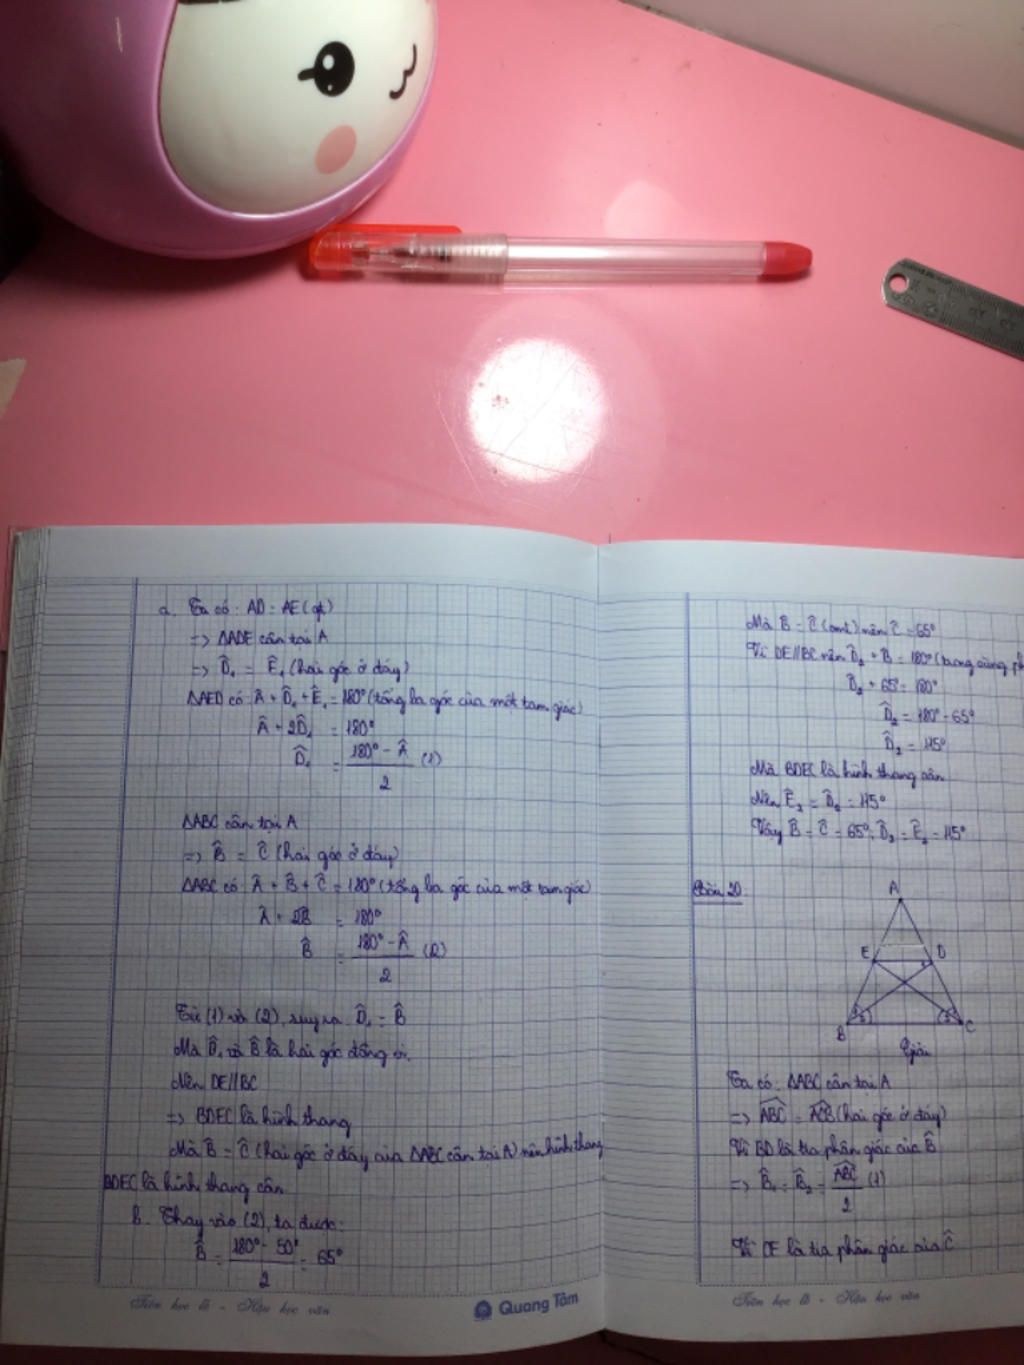 a. Ta có: AD = AE (gt)
=> ΔADE cân tại A
=> D̂₁ = Ê₁ (hai góc ở đáy)
ΔAED có: Â + D̂₁ + Ê₁ = 180° (tổng ba góc của một tam giác)
Â + 2D̂₁ = 180°
D̂₁ = (180° - Â)/2 (1)
ΔABC cân tại A
=> B̂ = Ĉ (hai góc ở đáy)
ΔABC có: Â + B̂ + Ĉ = 180° (tổng ba góc của một tam giác)
Â + 2B̂ = 180°
B̂ = (180° - Â)/2 (2)
Từ (1) và (2), suy ra: D̂₁ = B̂
Mà D̂₁ và B̂ là hai góc đồng vị
Nên DE//BC
=> BDEC là hình thang
Mà B̂ = Ĉ (hai góc ở đáy của ΔABC cân tại A) nên hình thang
BDEC là hình thang cân
b. Thay vào (2), ta được:
B̂ = (180° - 50°)/2 = 65°
Tiên học lễ - Hậu học văn
Quang Tâm
Mà B̂ = Ĉ (cmt) nên Ĉ = 65°
Vì DE//BC nên D̂₂ + B̂ = 180° (trong cùng ph
D̂₂ + 65° = 180°
D̂₂ = 180° - 65°
D̂₂ = 115°
Mà BDEC là hình thang cân
Nên Ê₂ = D̂₂ = 115°
Vậy B̂ = Ĉ = 65°, D̂₂ = Ê₂ = 115°
Bài 20
A
E D
B C
Giải
Ta có: ΔABC cân tại A
=> ABC = ACB (hai góc ở đáy)
Vì BD là tia phân giác của B̂
=> B̂₁ = B̂₂ = ABC/2 (1)
Vì CE là tia phân giác của Ĉ
Tiên học lễ - Hậu học văn